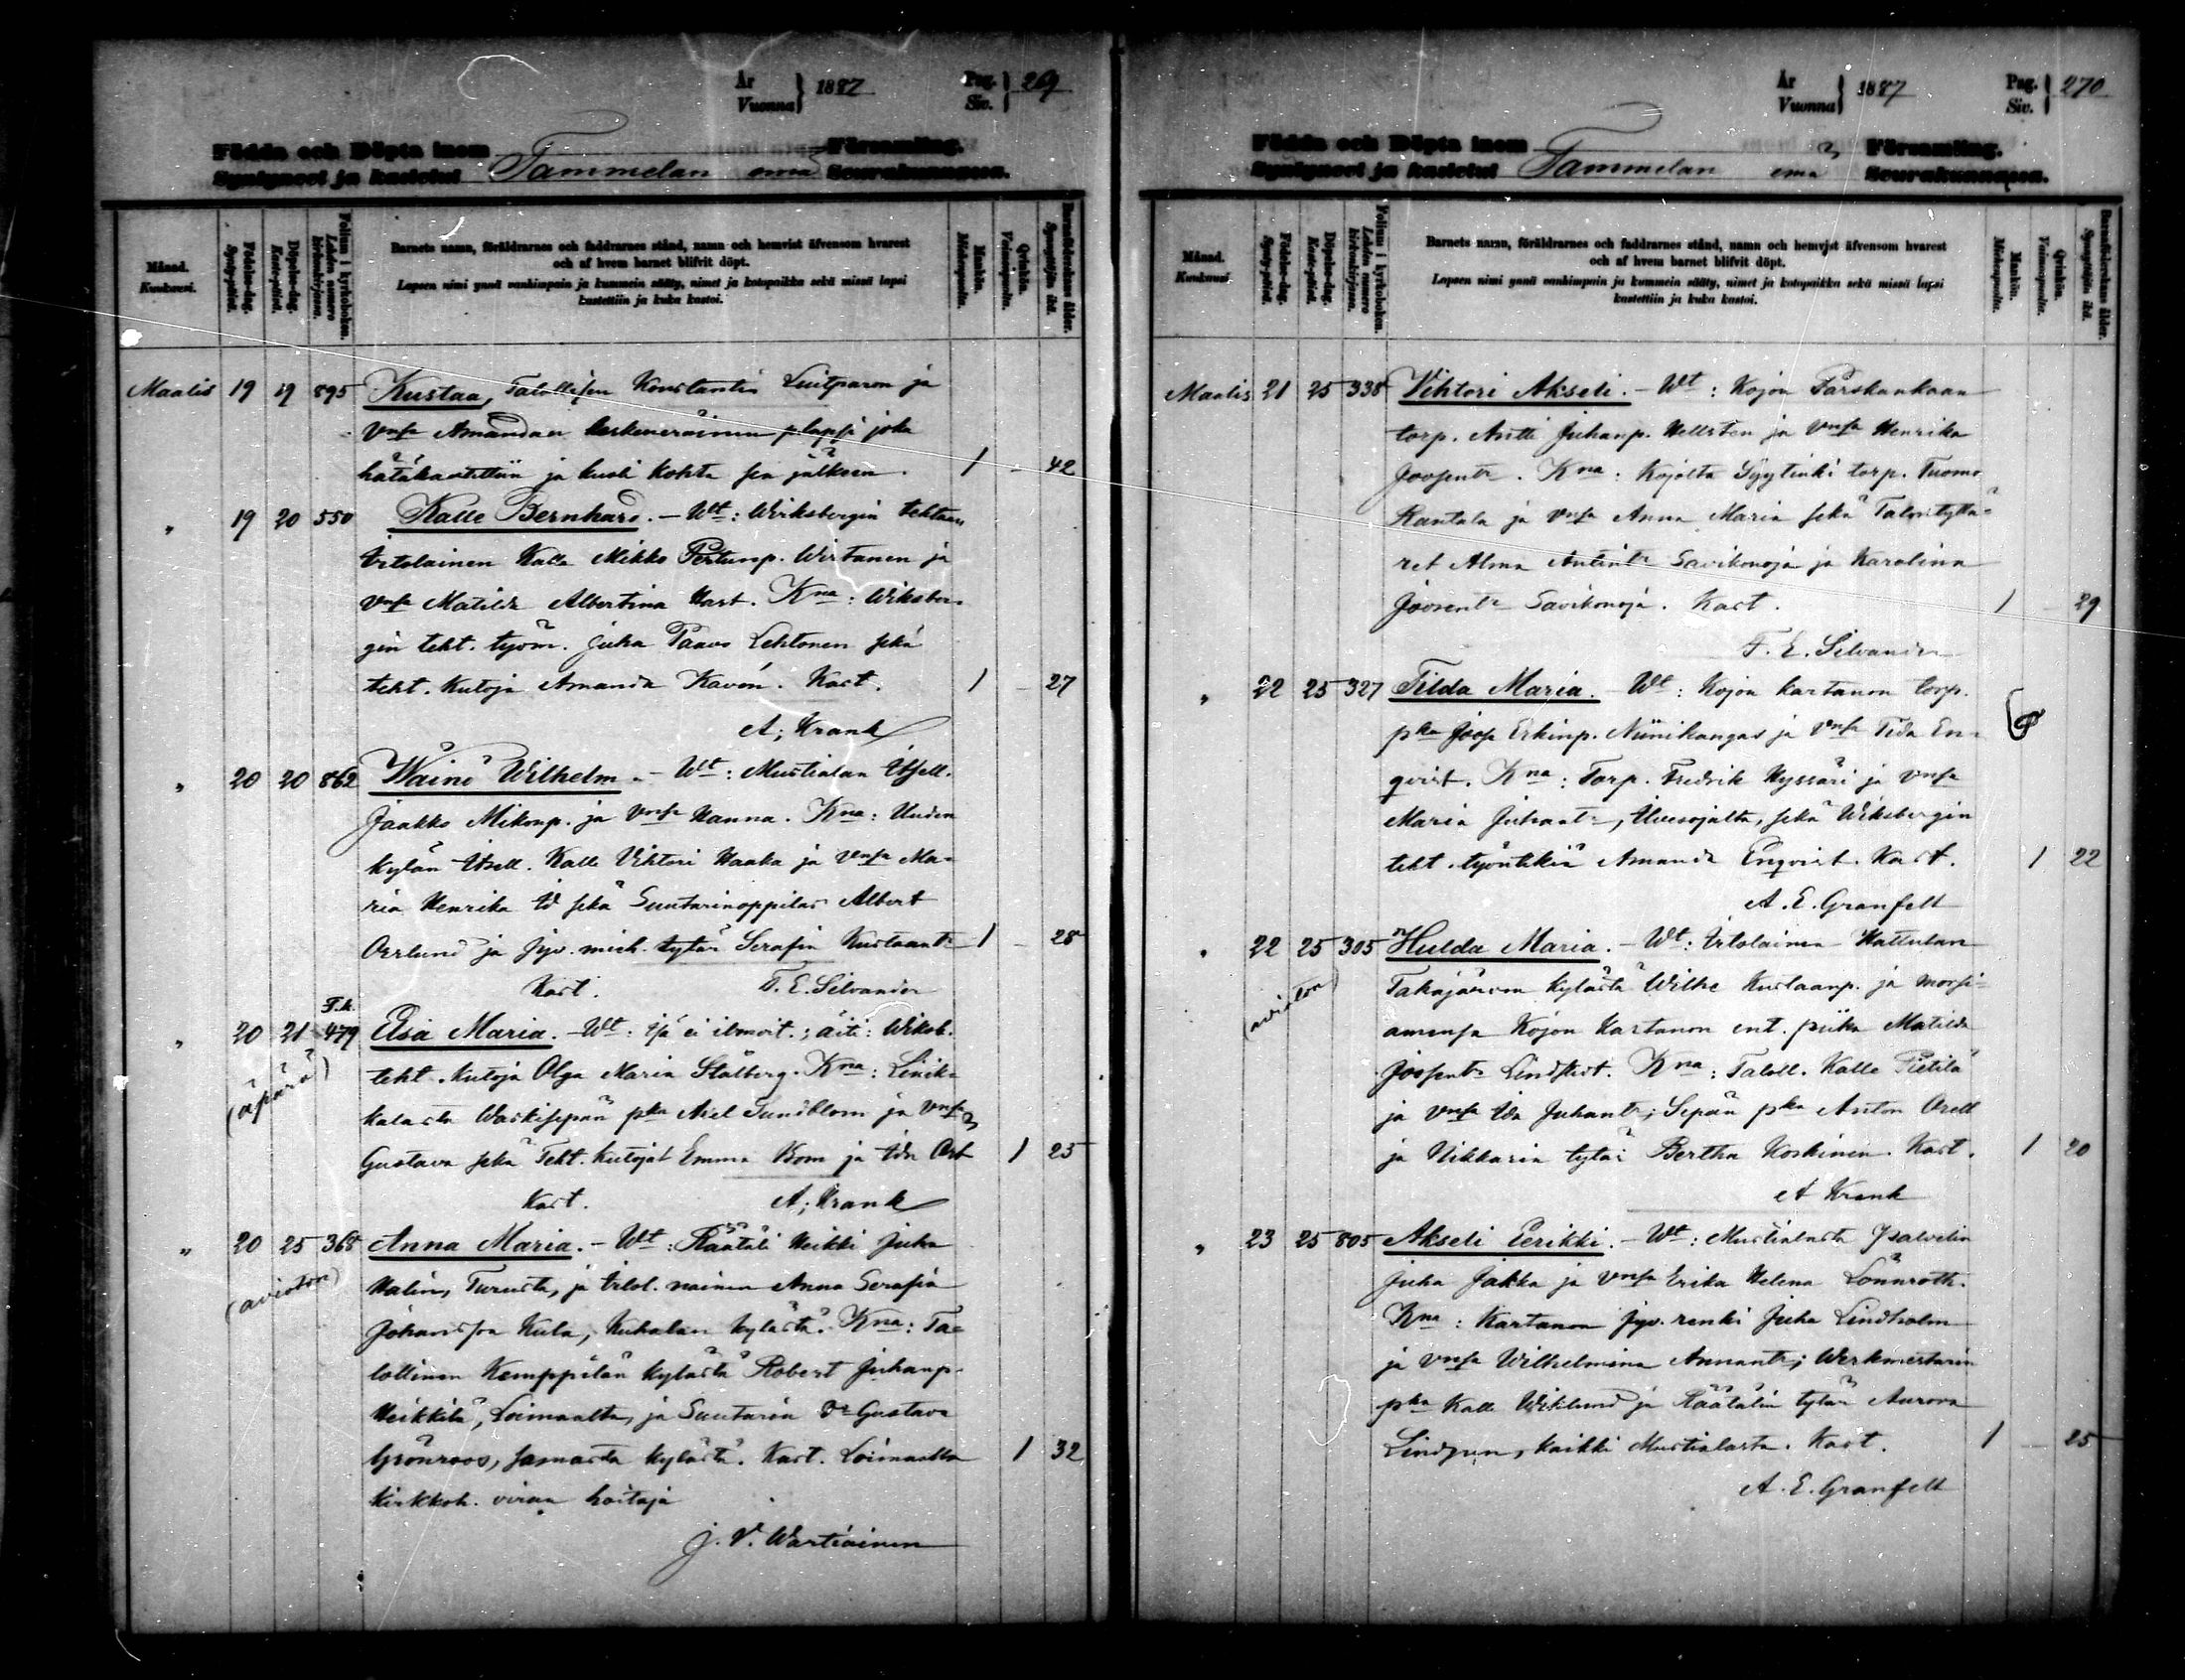 År
Vuonna } 1887
Pag.
Siv. } 269
Födda och Döpta inom
Syntyneet ja kastetut Tammelan emä Församling.
Seurakunnassa.
Månad.
Kuukausi.
Födelse-dag.
Synty-päivä.
Döpelse-dag.
Kaste-päivä.
Folium i kyrkoboken.
Lehden numero kirkonkirjassa.
Barnets namn, föräldrarnes och faddrarnes stånd, namn och hemvist äfvensom hvarest
och af hvem barnet blifvit döpt.
Lapsen nimi ynnä vanhimpain ja kummein sääty, nimet ja kotopaikka sekä missä lapsi
kastettiin ja kuka kastoi.
Mankön.
Miehenpuolta.
Qvinkön.
Vaimonpuolta.
Barnaföderskans ålder.
Synnyttäjän ikä.
Maalis 19 19 895 Kustaa, Talollisen Konstantin Luitparon ja
vnsa Amandan keskeneräinen plapsi joka
hätäkastettiin ja kuoli kohta sen jälkeen. 1 - 42
" 19 20 550 Kalle Bernhard. - Wt: Wiksbergin tehtaan
Irtolainen Kalle Mikko Pertunp. Wirtanen ja
vnsa Matilda Albertina Hast. Kna: Wiksber-
gin teht. työm. Juha Paavo Lehtonen sekä
teht. Kutoja Amanda Kavón. Kast. 1 - 27
A; Krank
" 20 20 862 Wäinö Wilhelm. - Wt: Mustialan Itsell.
Jaakko Mikonp. ja vnsa Hanna. Kna: Uuden
kylän Itsell. Kalle Vihtori Haaka ja vnsa Ma-
ria Henrika Id sekä Suutarinoppilas Albert
Oerlund ja jyv. mieh. tytär Serafia Kustaantr 1 - 28
Kast. F. E. Silvander
F.k.
" 20 21 479 Elsa Maria. - Wt: isä ei ilmoit.; äiti: Wiksb.
(äpärä)
teht. Kutoja Olga Maria Stålberg. Kna: Linik-
kalasta Waskisepän pka Axel Sundblom ja vnsa
Gustava sekä Teht. Kutojat Emma Bom ja Ida Ost 1 25
Kast. A; Krank
" 20 25 368 Anna Maria. - Wt: Räätäli Heikki Juha
(avioton)
Malin, Turusta, ja irtol. nainen Anna Serafia
Johansson Kula, Kuhalan kylästä. Kna: Ta-
lollinen Kemppilän kylästä Robert Juhanp.
Heikkilä, Loimaalta, ja Suutarin Dr Gustava
Grönroos, samasta kylästä. Kast. Loimaalla 1 32
Kirkkoh. viran hoitaja
J. V. Wartiainen
År
Vuonna } 1887
Pag.
Siv. } 270
Födda och Döpta inom
Syntyneet ja kastetut Tammelan emä Församling.
Seurakunnassa.
Månad.
Kuukausi.
Födelse-dag.
Synty-päivä.
Döpelse-dag.
Kaste-päivä.
Folium i kyrkoboken.
Lehden numero kirkonkirjassa.
Barnets namn, föräldrarnes och faddrarnes stånd, namn och hemvist äfvensom hvarest
och af hvem barnet blifvit döpt.
Lapsen nimi ynnä vanhimpain ja kummein sääty, nimet ja kotopaikka sekä missä lapsi
kastettiin ja kuka kastoi.
Mankön.
Miehenpuolta.
Qvinkön.
Vaimonpuolta.
Barnaföderskans ålder.
Synnyttäjän ikä.
Maalis 21 25 338 Vihtori Akseli. - Wt: Kojon Parskankaan
torp. Antti Juhanp. Hellsten ja vnsa Henrika
Joosentr. Kna: Kojolta Syytinki torp. Tuomo
Rantala ja vnsa Anna Maria sekä Talontyttä-
ret Alma Antintr Savikonoja ja Karolina
Joosentr Savikonoja. Kast. 1 - 29
F. E. Silvander
" 22 25 327 Tilda Maria. - Wt: Kojon kartanon torp.
pka Joos Erkinp. Niinikangas ja vnsa Tilda En-
qvist. Kna: Torp. Fredrik Hyssäri ja vnsa
Maria Juhantr, Uuesojalta, sekä Wiksbergin
teht. työntekiä Amanda Enqvist. Kast. 1 22
A. E. Granfelt
" 22 25 305 Hulda Maria. - Wt: Irtolainen Hattulan
(avioton)
Takajärven kylästä Wilhe Kustaanp. ja morsi-
amensa Kojon Kartanon ent. piika Matilda
Joosentr Lindstedt. Kna: Taloll. Kalle Pietilä
ja vnsa Ida Juhantr; Sepän pka Anton Orell
ja Nikkarin tytär Bertha Koskinen. Kast. 1 20
A Krank
" 23 25 805 Akseli Eerikki. - Wt: Mustialasta Palvelia
Juha Jakka ja vnsa Erika Helena Lönnroth.
Kna: Kartanon jyv. renki Juha Lindholm
ja vnsa Wilhelmina Annantr; Werkmestarin
pka Kalle Wiklund ja Räätälin tytär Aurora
Lindgren, kaikki Mustialasta. Kast. 1 - 25
A. E. Granfelt